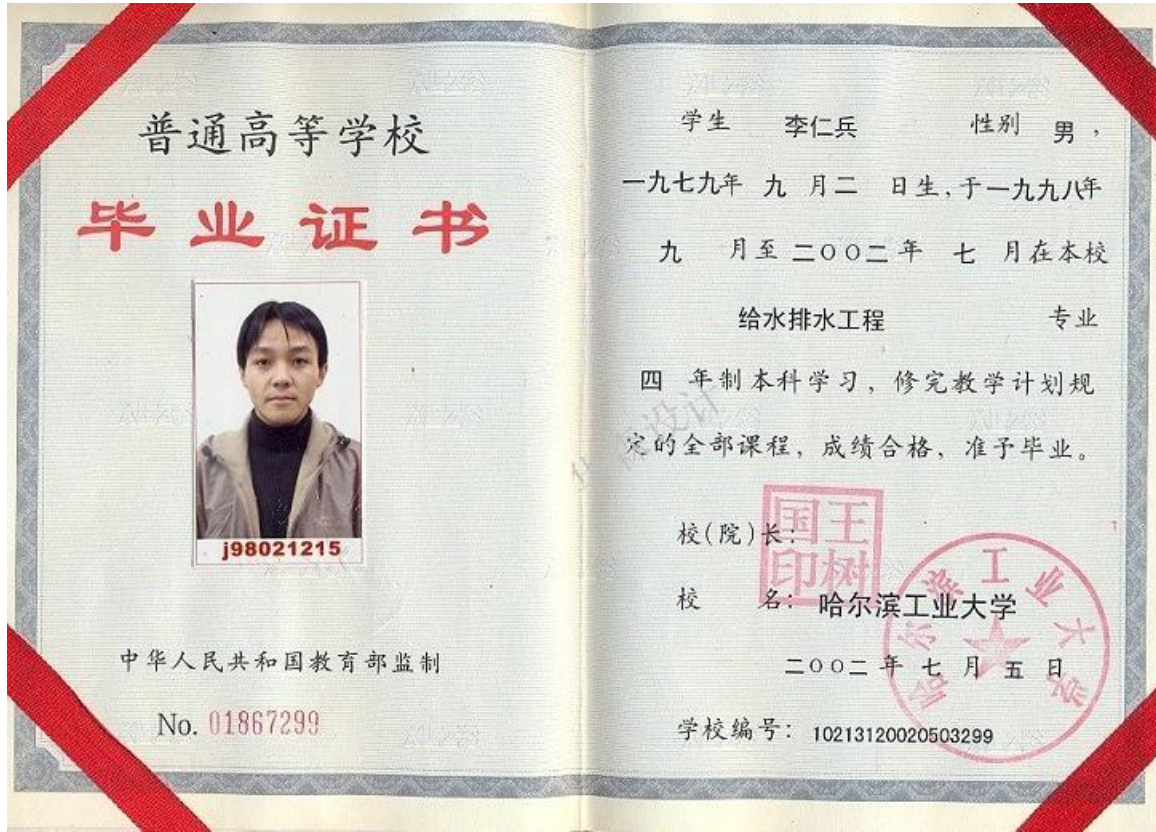 普通高等学校
毕业证书
j98021215
中华人民共和国教育部监制
No. 01867299
学生 李仁兵 性别 男，
一九七九年 九 月二 日生，于一九九八年
九 月至 二〇〇二年 七 月在本校
给水排水工程 专业
四 年制本科学习，修完教学计划规
定的全部课程，成绩合格，准予毕业。
校(院)长：
王树国印
校 名：哈尔滨工业大学
哈尔滨工业大学
二〇〇二年 七 月 五 日
学校编号：10213120020503299